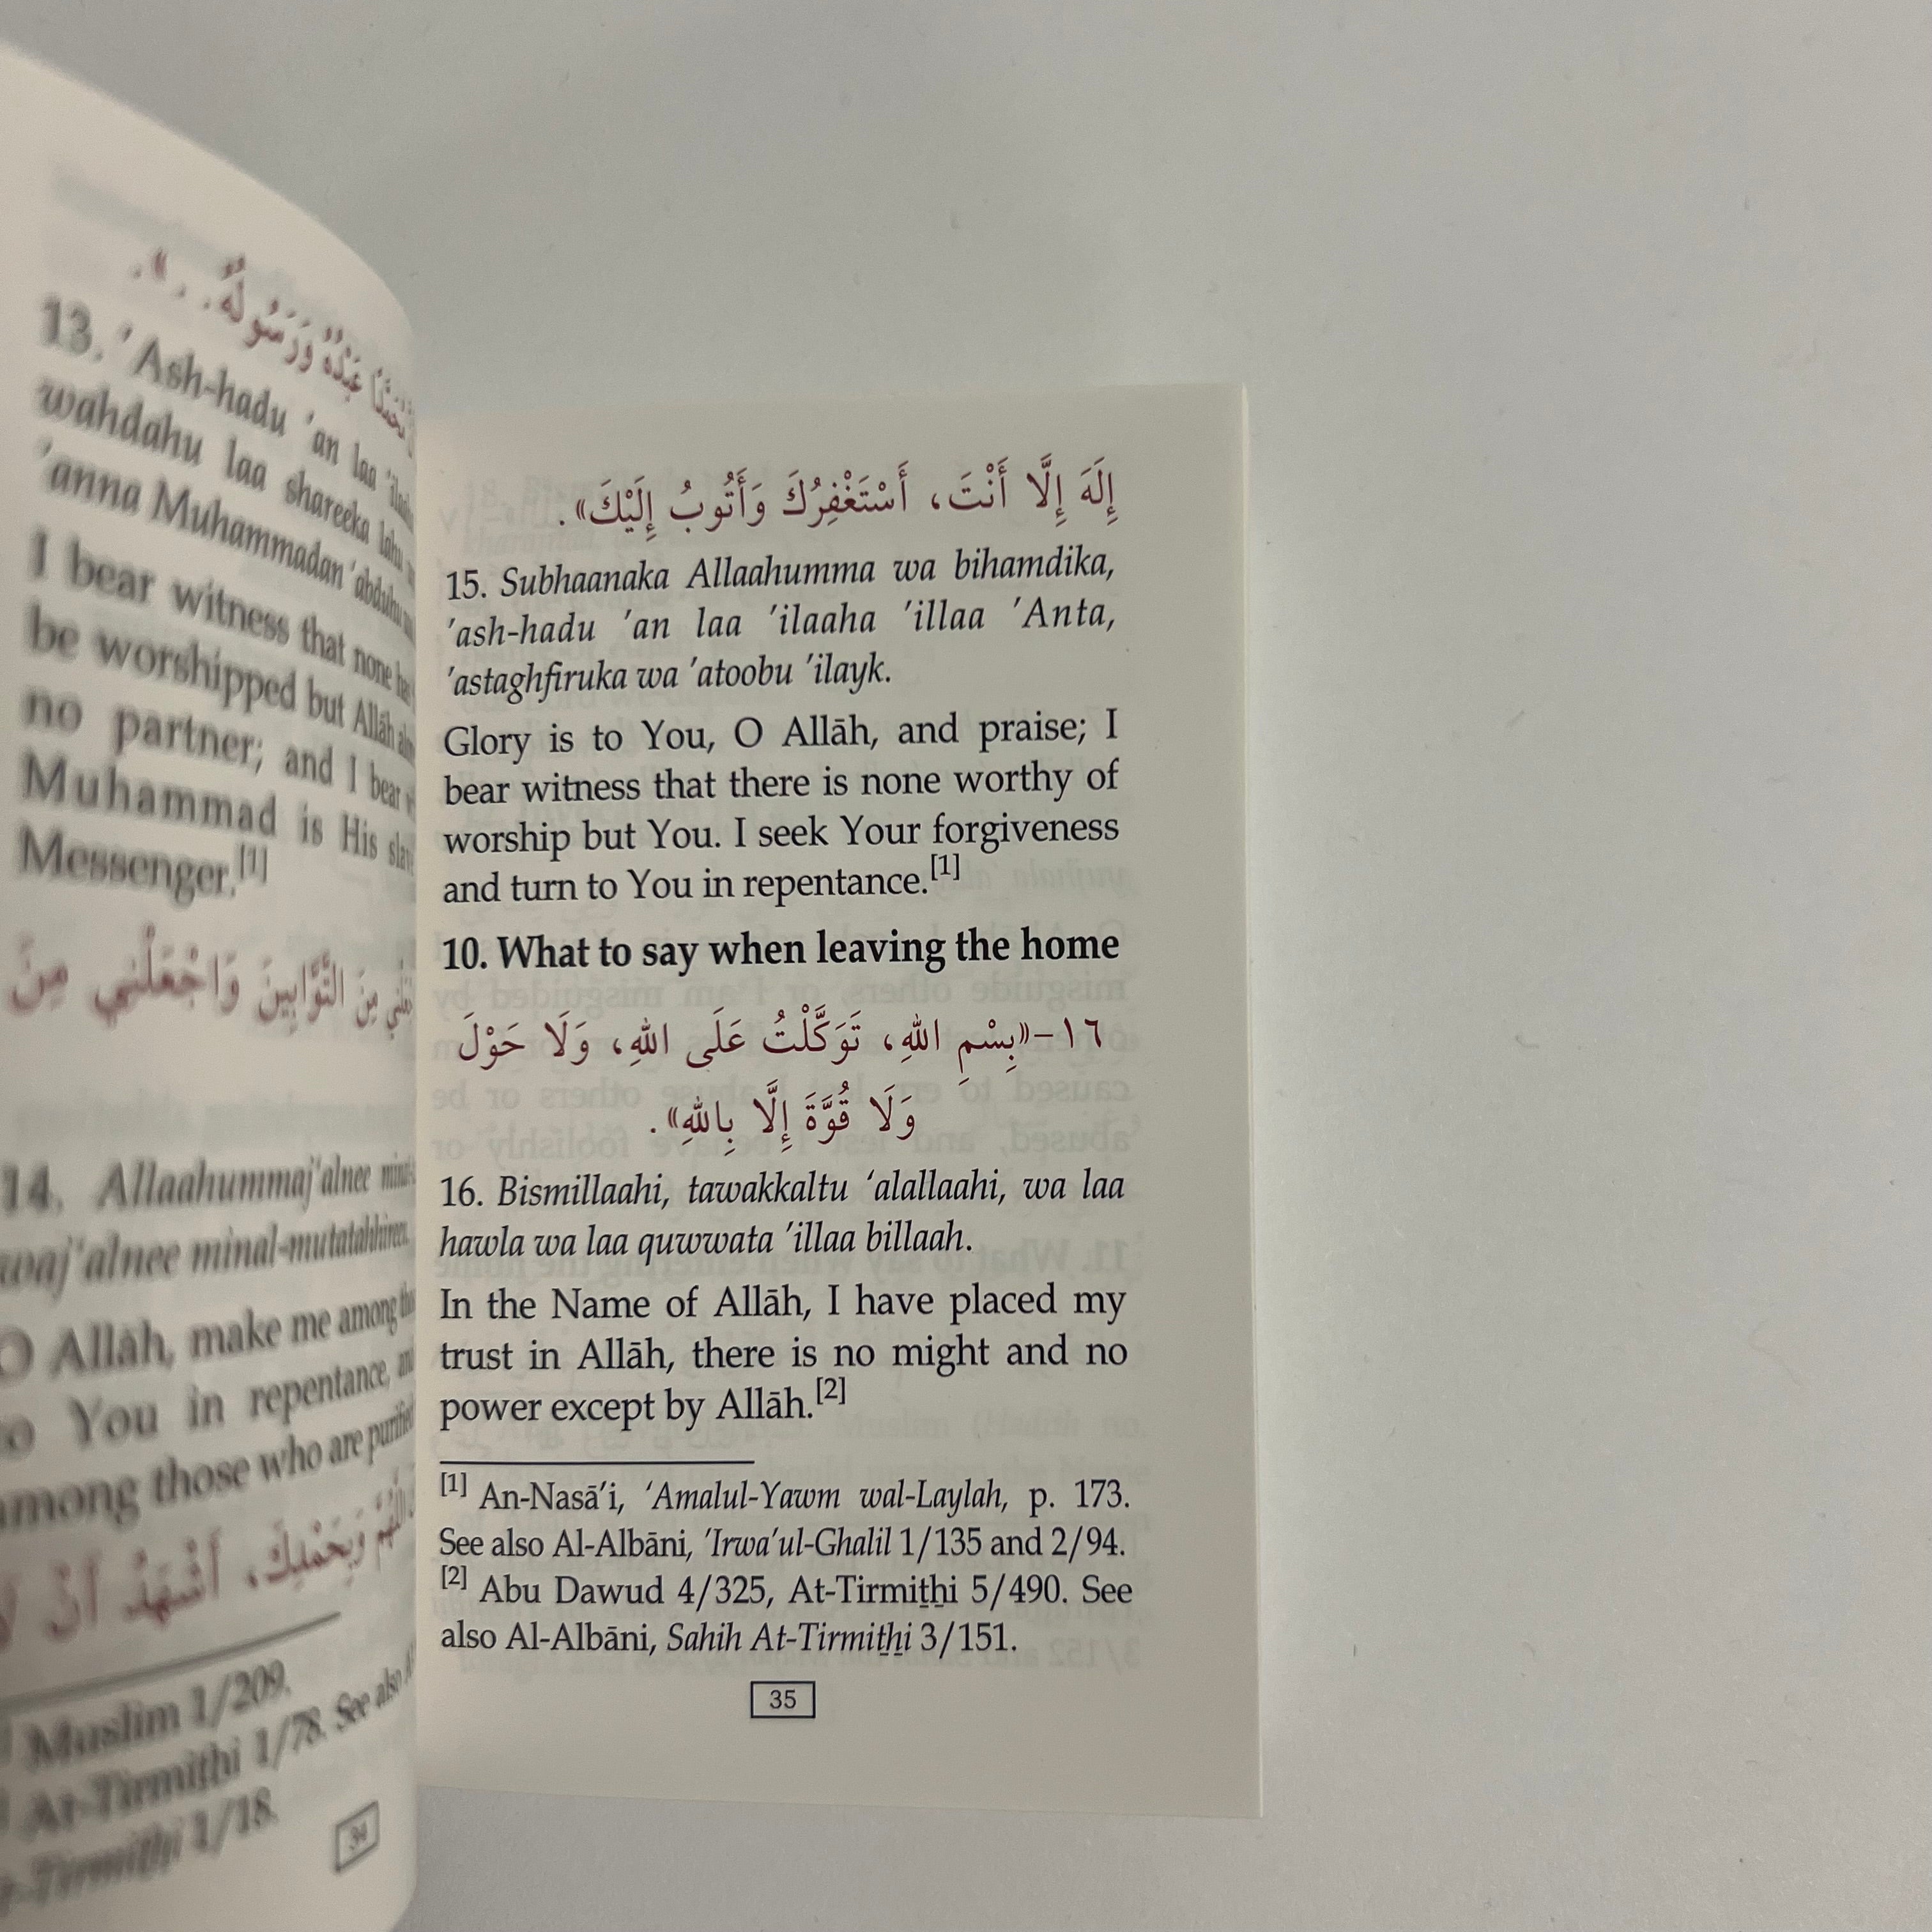 عَبْدُهُ وَرَسُولُهُ. . .».
13. ’Ash-hadu ’an laa ’ilaaha
wahdahu laa shareeka lahu
’anna Muhammadan ’abduhu
I bear witness that none has
be worshipped but Allāh
no partner; and I bear
Muhammad is His
Messenger.[1]
مِنَ التَّوَّابِينَ وَاجْعَلْنِي مِنَ
14. Allaahummaj‘alnee
waj‘alnee minal-mutatahhireen.
O Allāh, make me among
to You in repentance,
among those who are
وَبِحَمْدِكَ، أَشْهَدُ أَنْ لَا
Muslim 1/209.
At-Tirmithi 1/78. See also
1/18.
34
إِلَهَ إِلَّا أَنْتَ، أَسْتَغْفِرُكَ وَأَتُوبُ إِلَيْكَ».
15. Subhaanaka Allaahumma wa bihamdika,
’ash-hadu ’an laa ’ilaaha ’illaa ’Anta,
’astaghfiruka wa ’atoobu ’ilayk.
Glory is to You, O Allāh, and praise; I
bear witness that there is none worthy of
worship but You. I seek Your forgiveness
and turn to You in repentance.[1]
10. What to say when leaving the home
١٦-«بِسْمِ اللهِ، تَوَكَّلْتُ عَلَى اللهِ، وَلَا حَوْلَ
وَلَا قُوَّةَ إِلَّا بِاللهِ».
16. Bismillaahi, tawakkaltu ‘alallaahi, wa laa
hawla wa laa quwwata ’illaa billaah.
In the Name of Allāh, I have placed my
trust in Allāh, there is no might and no
power except by Allāh.[2]
[1] An-Nasā’i, ‘Amalul-Yawm wal-Laylah, p. 173.
See also Al-Albāni, ’Irwa’ul-Ghalil 1/135 and 2/94.
[2] Abu Dawud 4/325, At-Tirmiṯẖi 5/490. See
also Al-Albāni, Sahih At-Tirmiṯẖi 3/151.
35